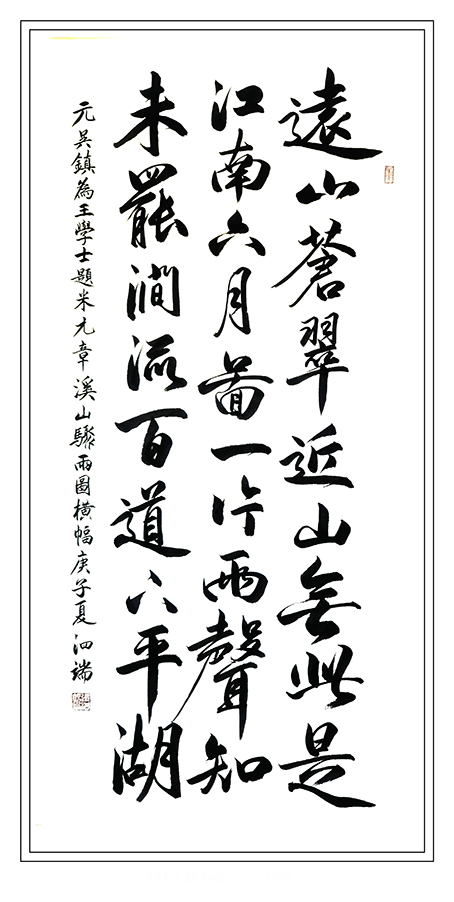 遠山蒼翠近山無此是
江南六月啚一片雨聲知
未罷澗流百道入平湖
元吳鎮為王學士題米元章溪山驟雨圖橫幅庚子夏泗端